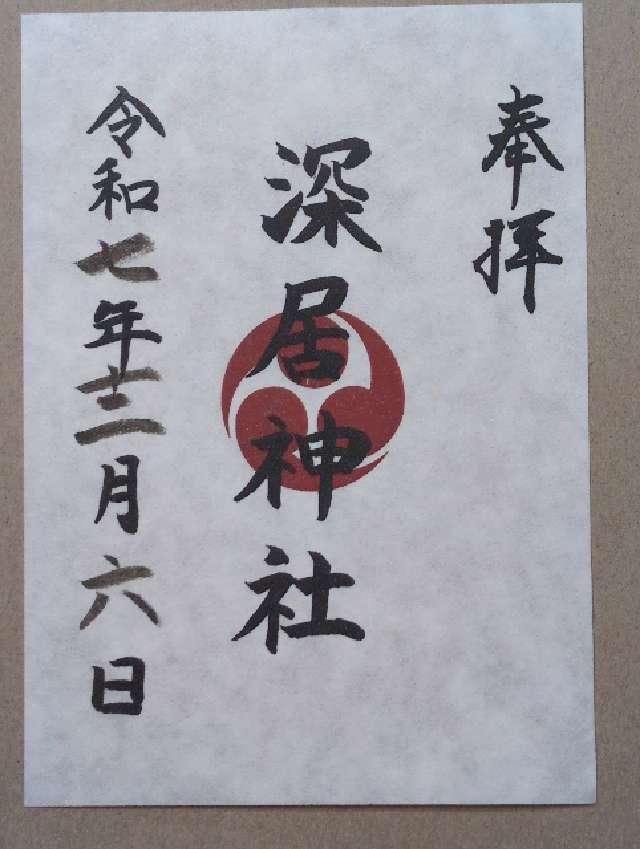 奉拝
深居神社
令和七年十二月六日